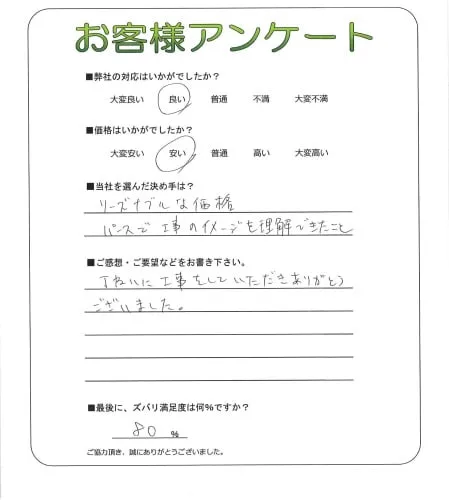 お客様アンケート
■弊社の対応はいかがでしたか？
大変良い 良い 普通 不満 大変不満
■価格はいかがでしたか？
大変安い 安い 普通 高い 大変高い
■当社を選んだ決め手は？
リーズナブルな価格
パースで工事のイメージを理解できたこと
■ご感想・ご要望などをお書き下さい。
丁ねいに工事をしていただきありがとう
ございました。
■最後に、ズバリ満足度は何％ですか？
80 ％
ご協力頂き、誠にありがとうございました。